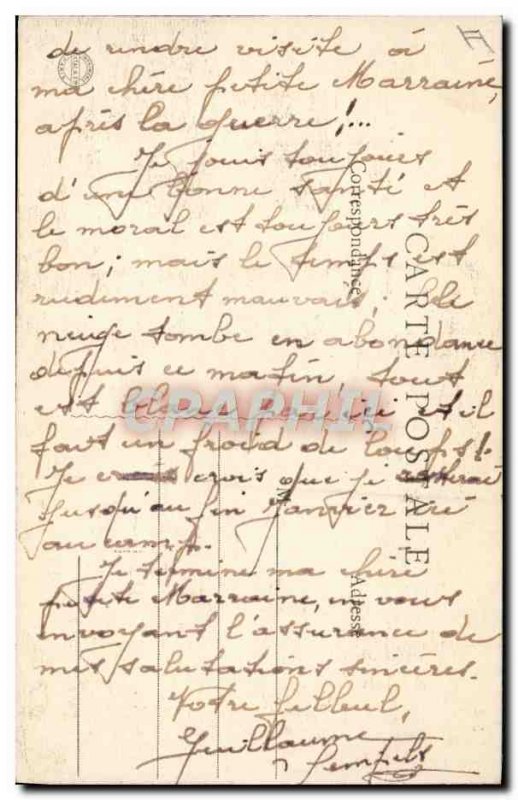 II
de rendre visite à
ma chère petite Marraine,
après la guerre!...
Je jouis toujours
d'une bonne santé et
le moral est toujours très
bon; mais le temps est
rudement mauvais; la
neige tombe en abondance
depuis ce matin, tout
est blanc par ici et il
fait un froid de loups!
Je crois que je resterai
jusqu'au fin Janvier ici
au camp.
Je termine ma chère
petite Marraine, en vous
envoyant l'assurance de
mes salutations sincères.
Votre filleul,
Guillaume
CARTE POSTALE
Correspondance
Adresse
CPAPHIL